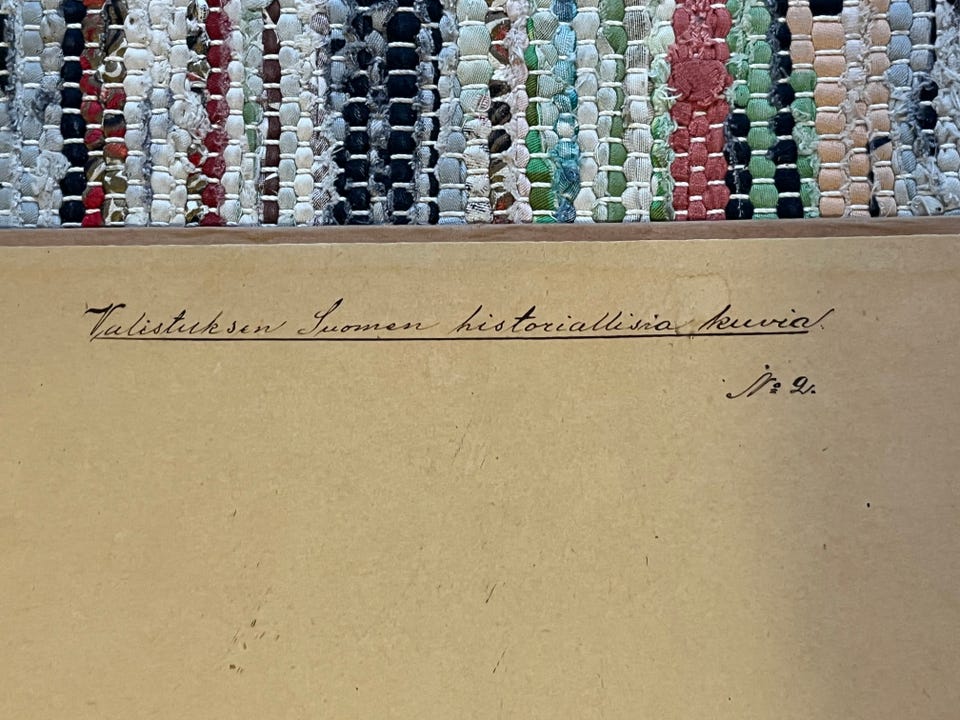 Valistuksen Suomen historiallisia kuvia.
№ 2.